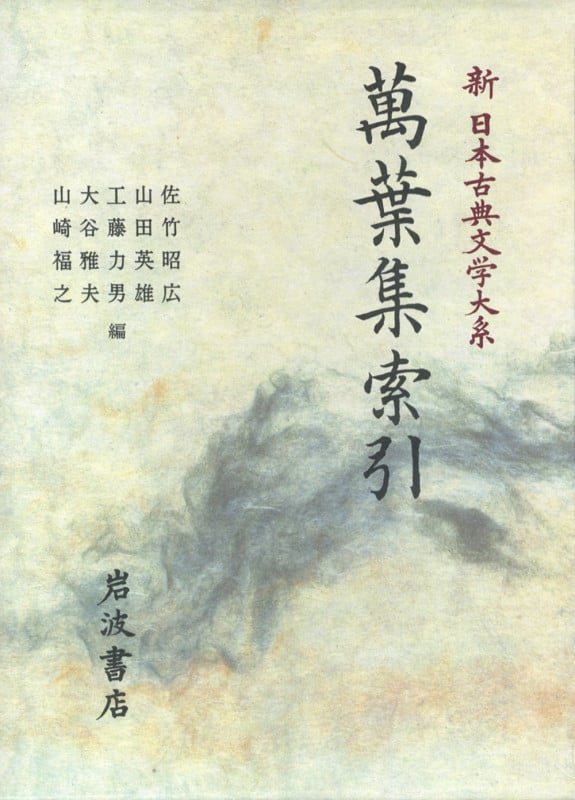 新 日本古典文学大系
萬葉集索引
佐竹昭広
山田英雄
工藤力男 編
大谷雅夫
山崎福之
岩波書店